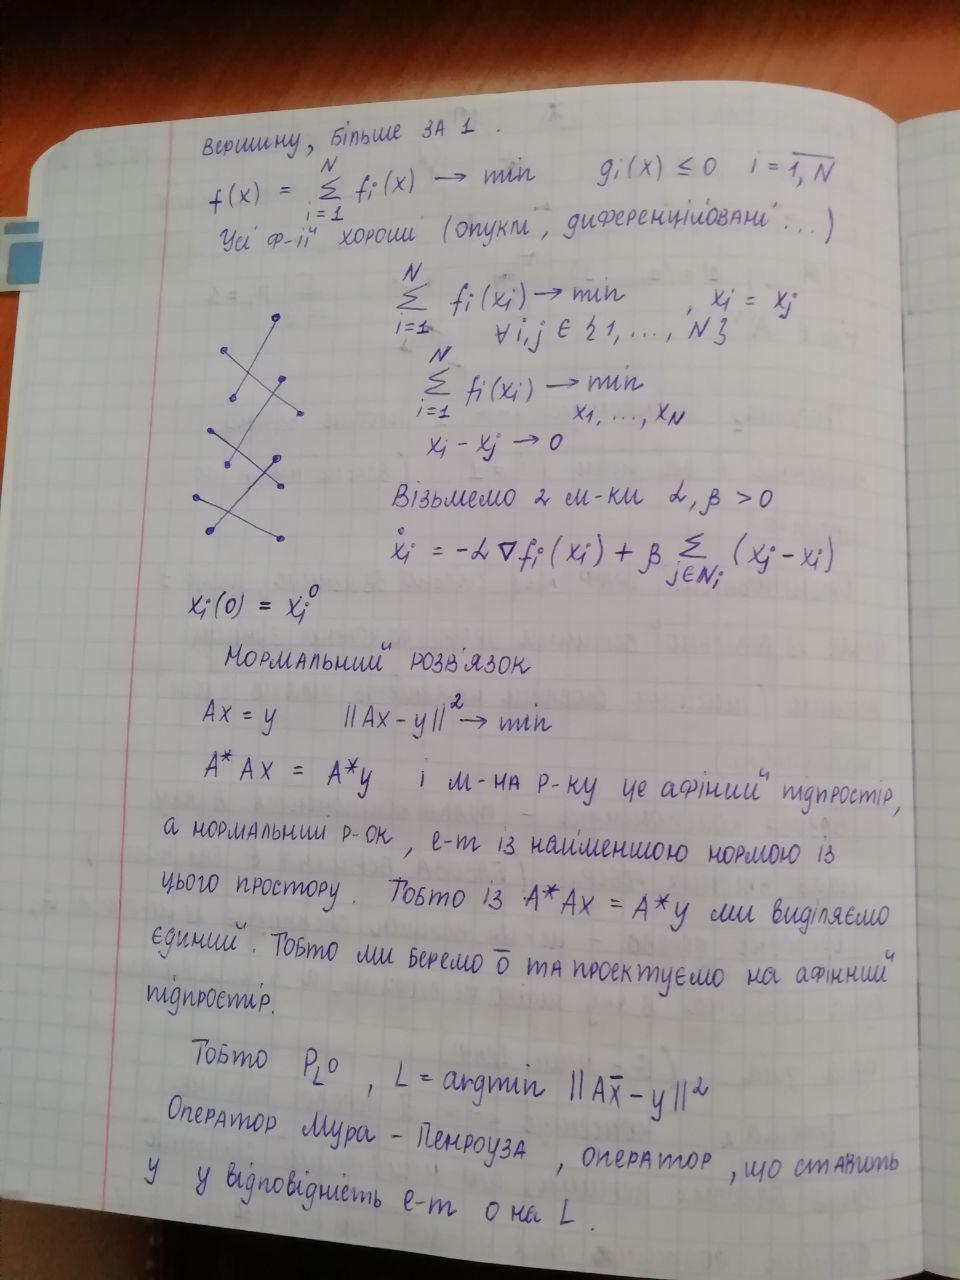 вершину, більше за 1.
f(x) = Σ_{i=1}^{N} fi(x) → min    gi(x) ≤ 0   i = \overline{1,N}
Усі ф-ії хороші (опуклі, диференційовані ...)
Σ_{i=1}^{N} fi(xi) → min , xi = xj
∀i,j ∈ {1, ..., N}
Σ_{i=1}^{N} fi(xi) → min
x1, ..., xN
xi - xj → 0
Візьмемо 2 м-ки α, β > 0
ẋi = -α ∇fi(xi) + β Σ_{j∈Ni} (xj - xi)
xi(0) = xi⁰
Нормальний розв'язок
Ax = y    ||Ax - y||² → min
A* Ax = A*y   і м-на р-ку це афіний підпростір,
а нормальний р-ок, е-т із найменшою нормою із
цього простору. Тобто із A*Ax = A*y ми виділяємо
єдиний. Тобто ми беремо \overline{0} та проєктуємо на афінний
підпростір.
Тобто P_L 0 , L = argmin ||A\overline{x} - y||²
Оператор Мура - Пенроуза , оператор, що ставить
y у відповідність е-т 0 на L.